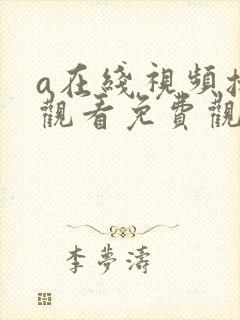 a在綫視頻
觀看免費觀
李夢濤